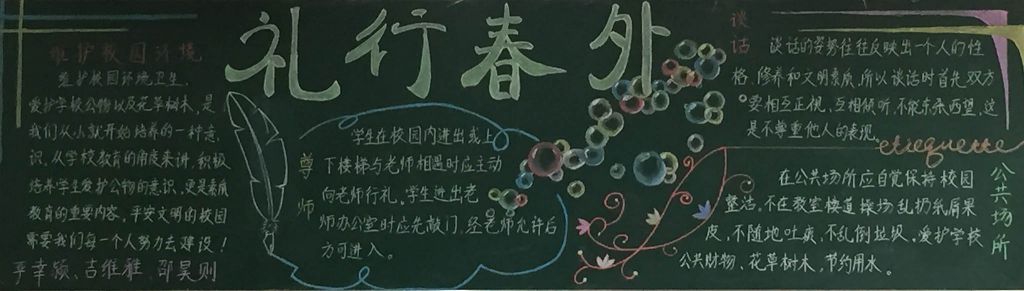 礼行春外
维护校园环境
维护校园环境卫生,
爱护学校公物以及花草树木,是
我们从小就开始培养的一种意
识,从学校教育的角度来讲,积极
培养学生爱护公物的意识,更是素质
教育的重要内容,平安文明的校园
需要我们每一个人努力去建设!
吉维雅、邵昊则
尊师
学生在校园内进出或上
下楼梯与老师相遇时应主动
向老师行礼。学生进出老
师办公室时应先敲门,经老师允许后
方可进入。
谈话
谈话的姿势往往反映出一个人的性
格、修养和文明素质,所以谈话时首先,双方
要相互正视、互相倾听,不能东张西望,这
是不尊重他人的表现。
etiquette
公共场所
在公共场所应自觉保持校园
整洁,不在教室楼道操场乱扔纸屑果
皮,不随地吐痰,不乱倒垃圾。爱护学校
公共财物、花草树木,节约用水。